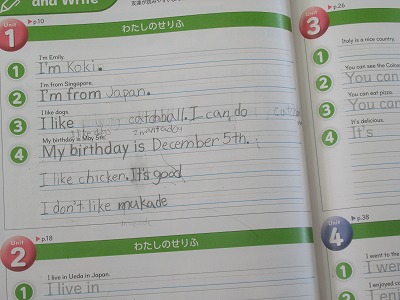 and Write
Unit 1 ▶p.10 わたしのせりふ
I'm Emily.
1 I'm Koki.
I'm from Singapore.
2 I'm from Japan.
I like dogs.
3 I like catchball. I can do
My birthday is May 5th.
4 My birthday is December 5th.
I like chicken. It's good
I don't like mukade
Unit 2 ▶p.18 わたしのせりふ
I live in Ueda in Japan.
1 I live in
Unit 3 ▶p.26
Italy is a nice country.
1
You can see the
2 You can
You can eat pizza.
3 You can
It's delicious.
4 It's
Unit 4 ▶p.38
I went to the
1 I went
I enjoyed
2